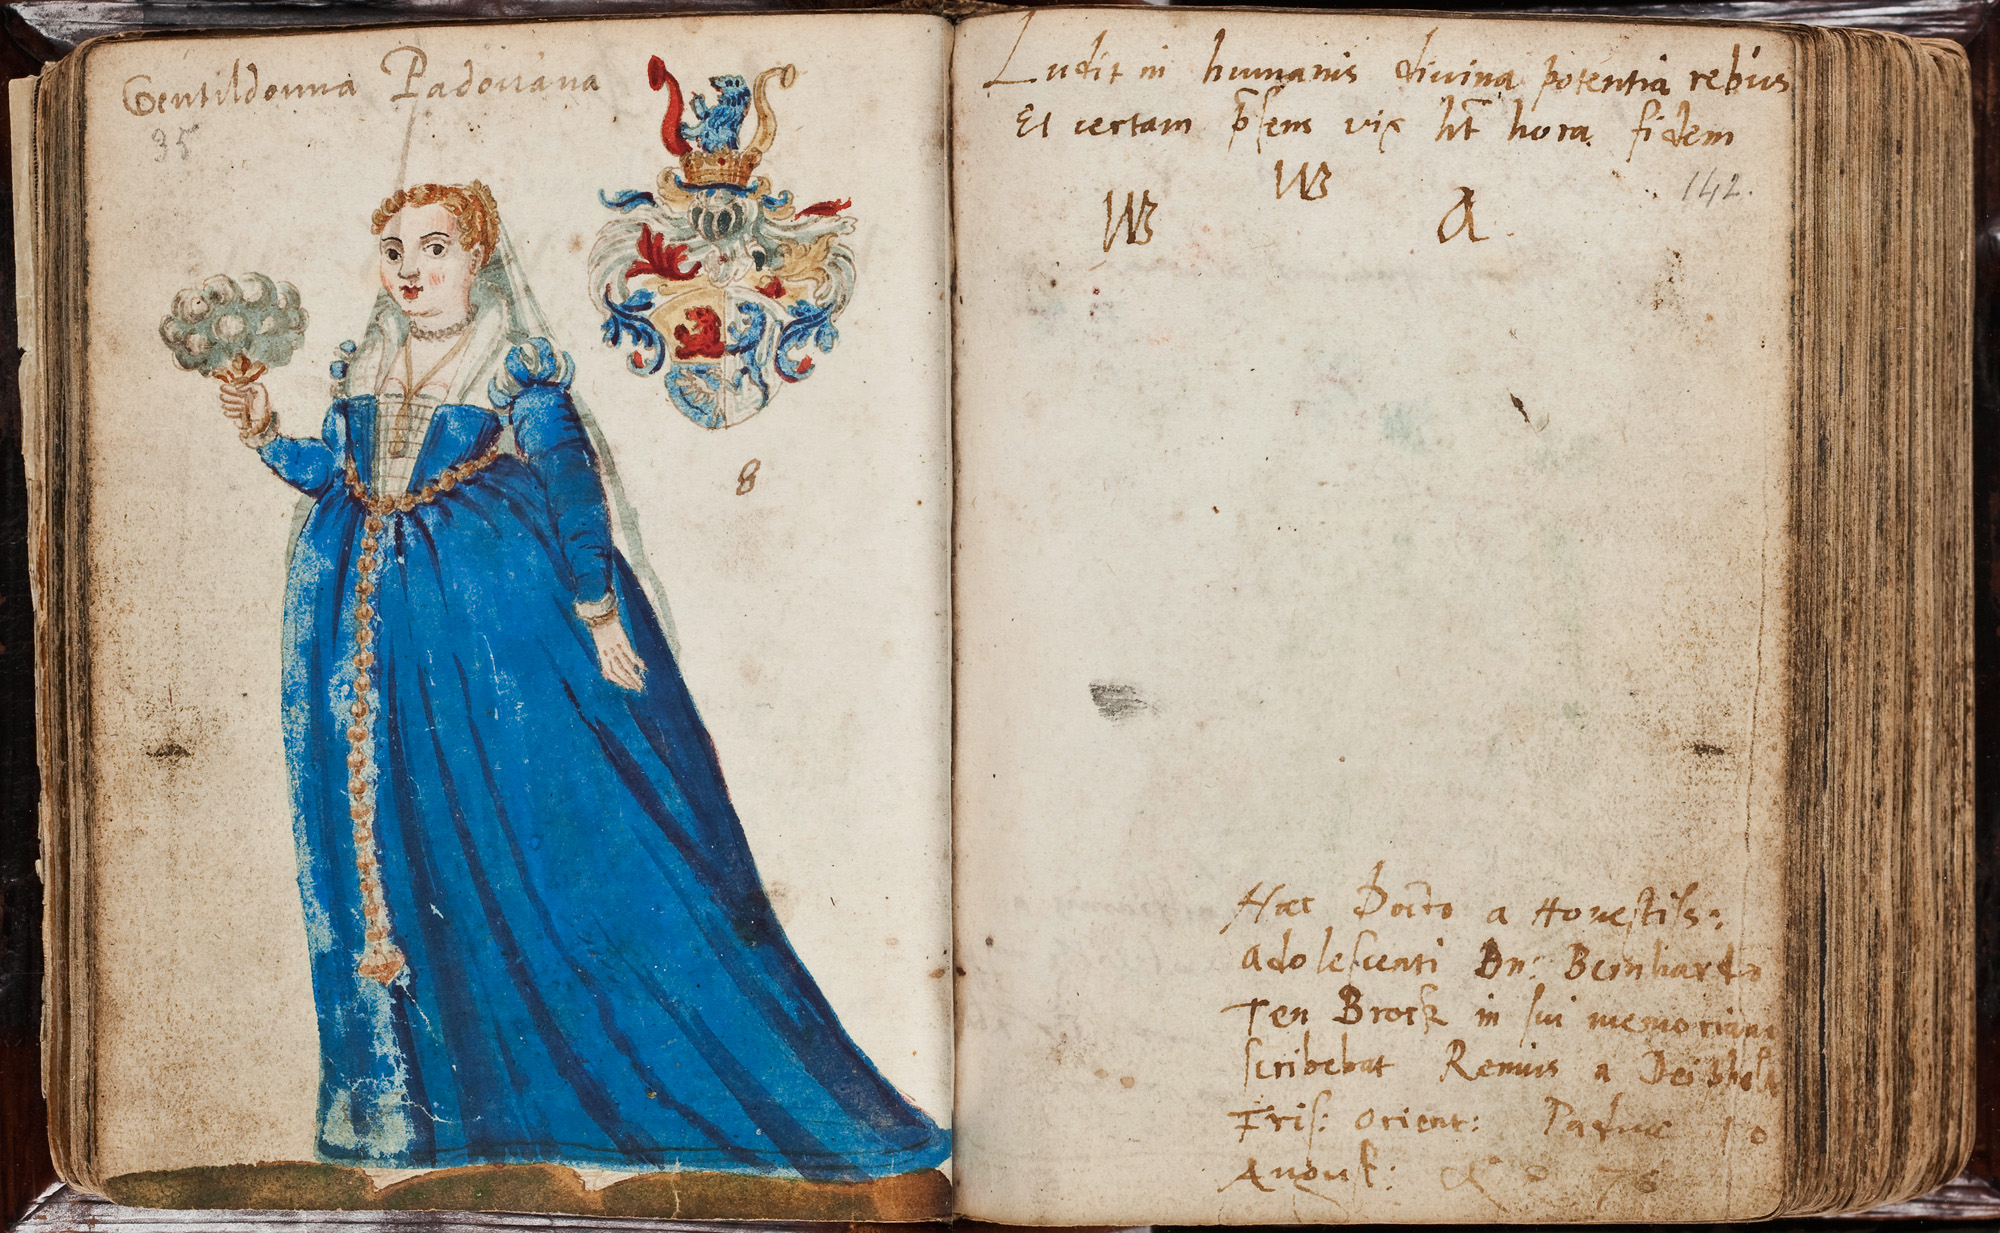 Gentildonna Padouana
35
8
Ludit in humanis diuina potentia rebus
Et certam p̄sens vix ht̄ hora fidem
142.
WB WB A.
Haec Docto a Honestiss:
Adolescenti Dn: Bernhardo
Ten Brock in sui memoriam
scribebat Remus a
Fris: Orient: Paduae 10
August: